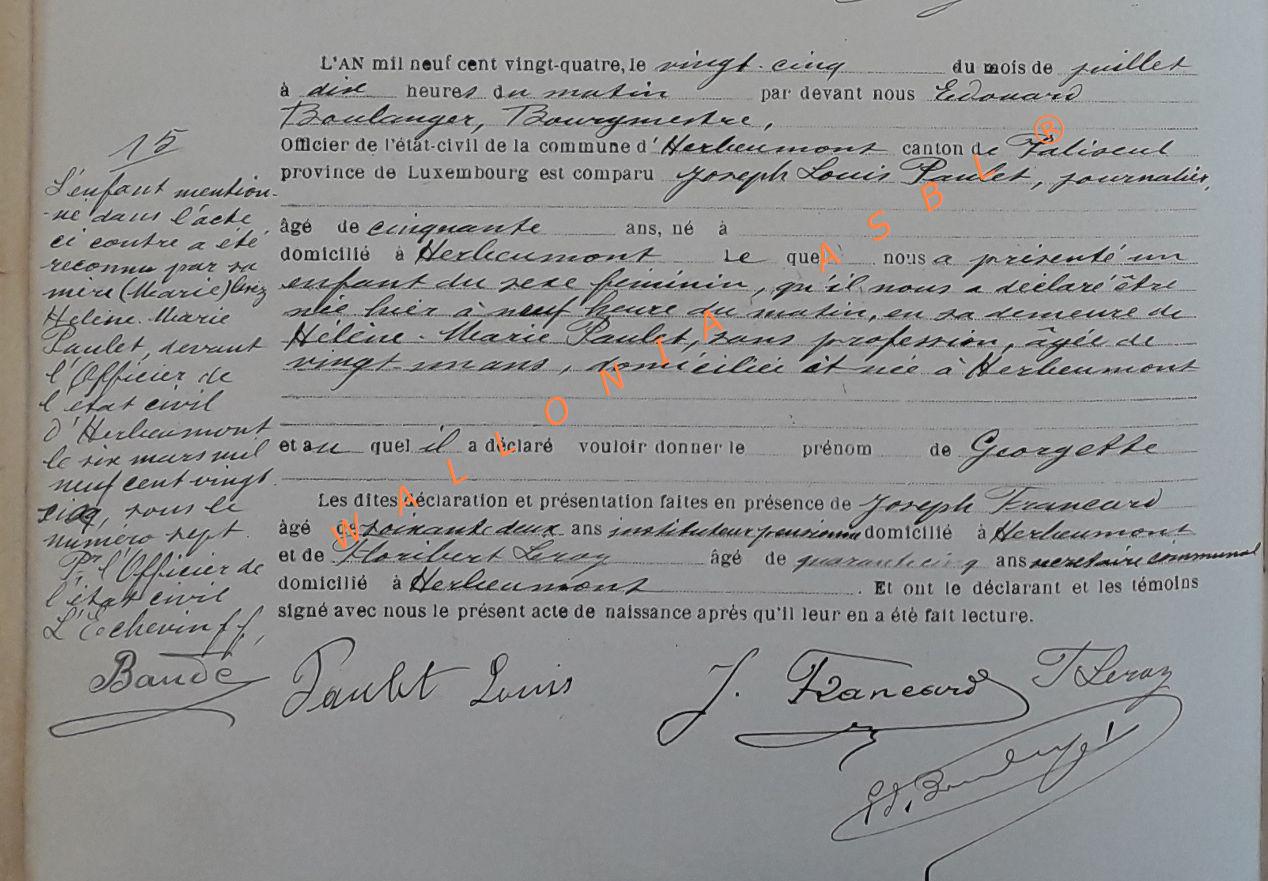 L'AN mil neuf cent vingt-quatre, le vingt-cinq du mois de juillet
à dix heures du matin par devant nous Edouard
Boulanger, Bourgmestre,
Officier de l'état-civil de la commune d'Herbeumont canton de Paliseul
province de Luxembourg est comparu Joseph Louis Paulet, journalier,
âgé de cinquante ans, né à
domicilié à Herbeumont Le quel nous a présenté un
enfant du sexe féminin, qu'il nous a déclaré être
née hier à neuf heure du matin, en sa demeure de
Hélène-Marie Paulet, sans profession, âgée de
vingt-un ans, domiciliée et née à Herbeumont
et au quel il a déclaré vouloir donner le prénom de Georgette
Les dites déclaration et présentation faites en présence de Joseph Francard
âgé de soixante deux ans instituteur pensionné domicilié à Herbeumont
et de Floribert Leroy âgé de quarante cinq ans secrétaire communal
domicilié à Herbeumont. Et ont le déclarant et les témoins
signé avec nous le présent acte de naissance après qu'il leur en a été fait lecture.
15
L'enfant mention-
-né dans l'acte
ci contre a été
reconnu par sa
mère (Marie)
Hélène-Marie
Paulet, devant
l'Officier de
l'état civil
d'Herbeumont
le six mars mil
neuf cent vingt
cinq, sous le
numéro sept.
Pr l'Officier de
l'état civil
L'Echevin ff,
Baudé
Paulet Louis
J. Francard
F Leroy
Ed. Boulanger
WALLONIA ASBL ®